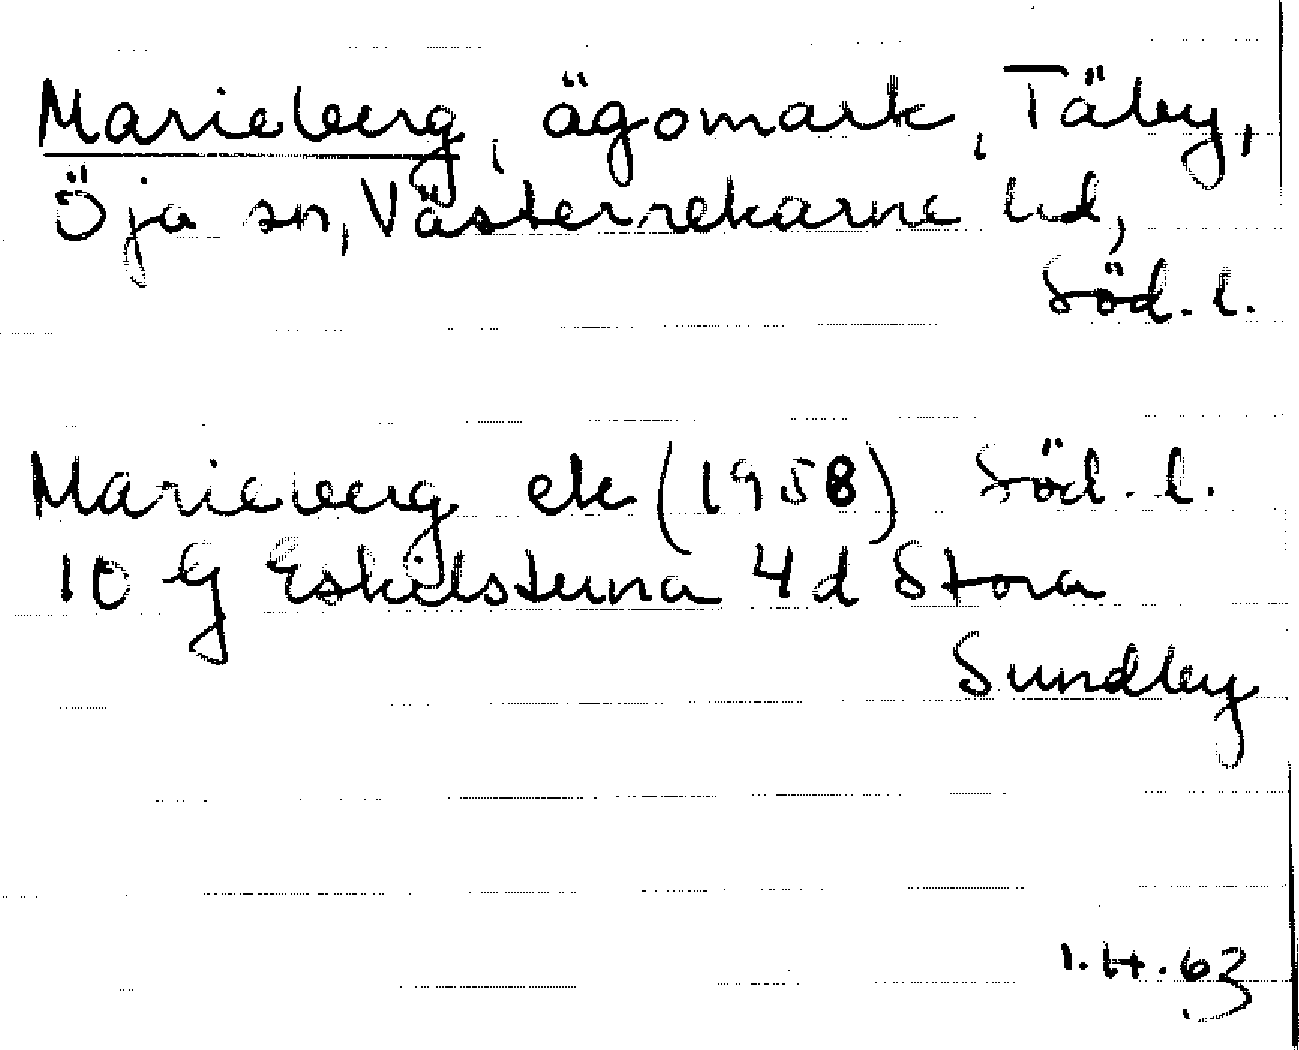 Marieberg, ägomark, Täby,
Öja sn, Västerrekarne hd,
Söd. l.
Marieberg ek (1958) Söd. l.
10 G Eskilstuna 4 d Stora
Sundby
1.H.63